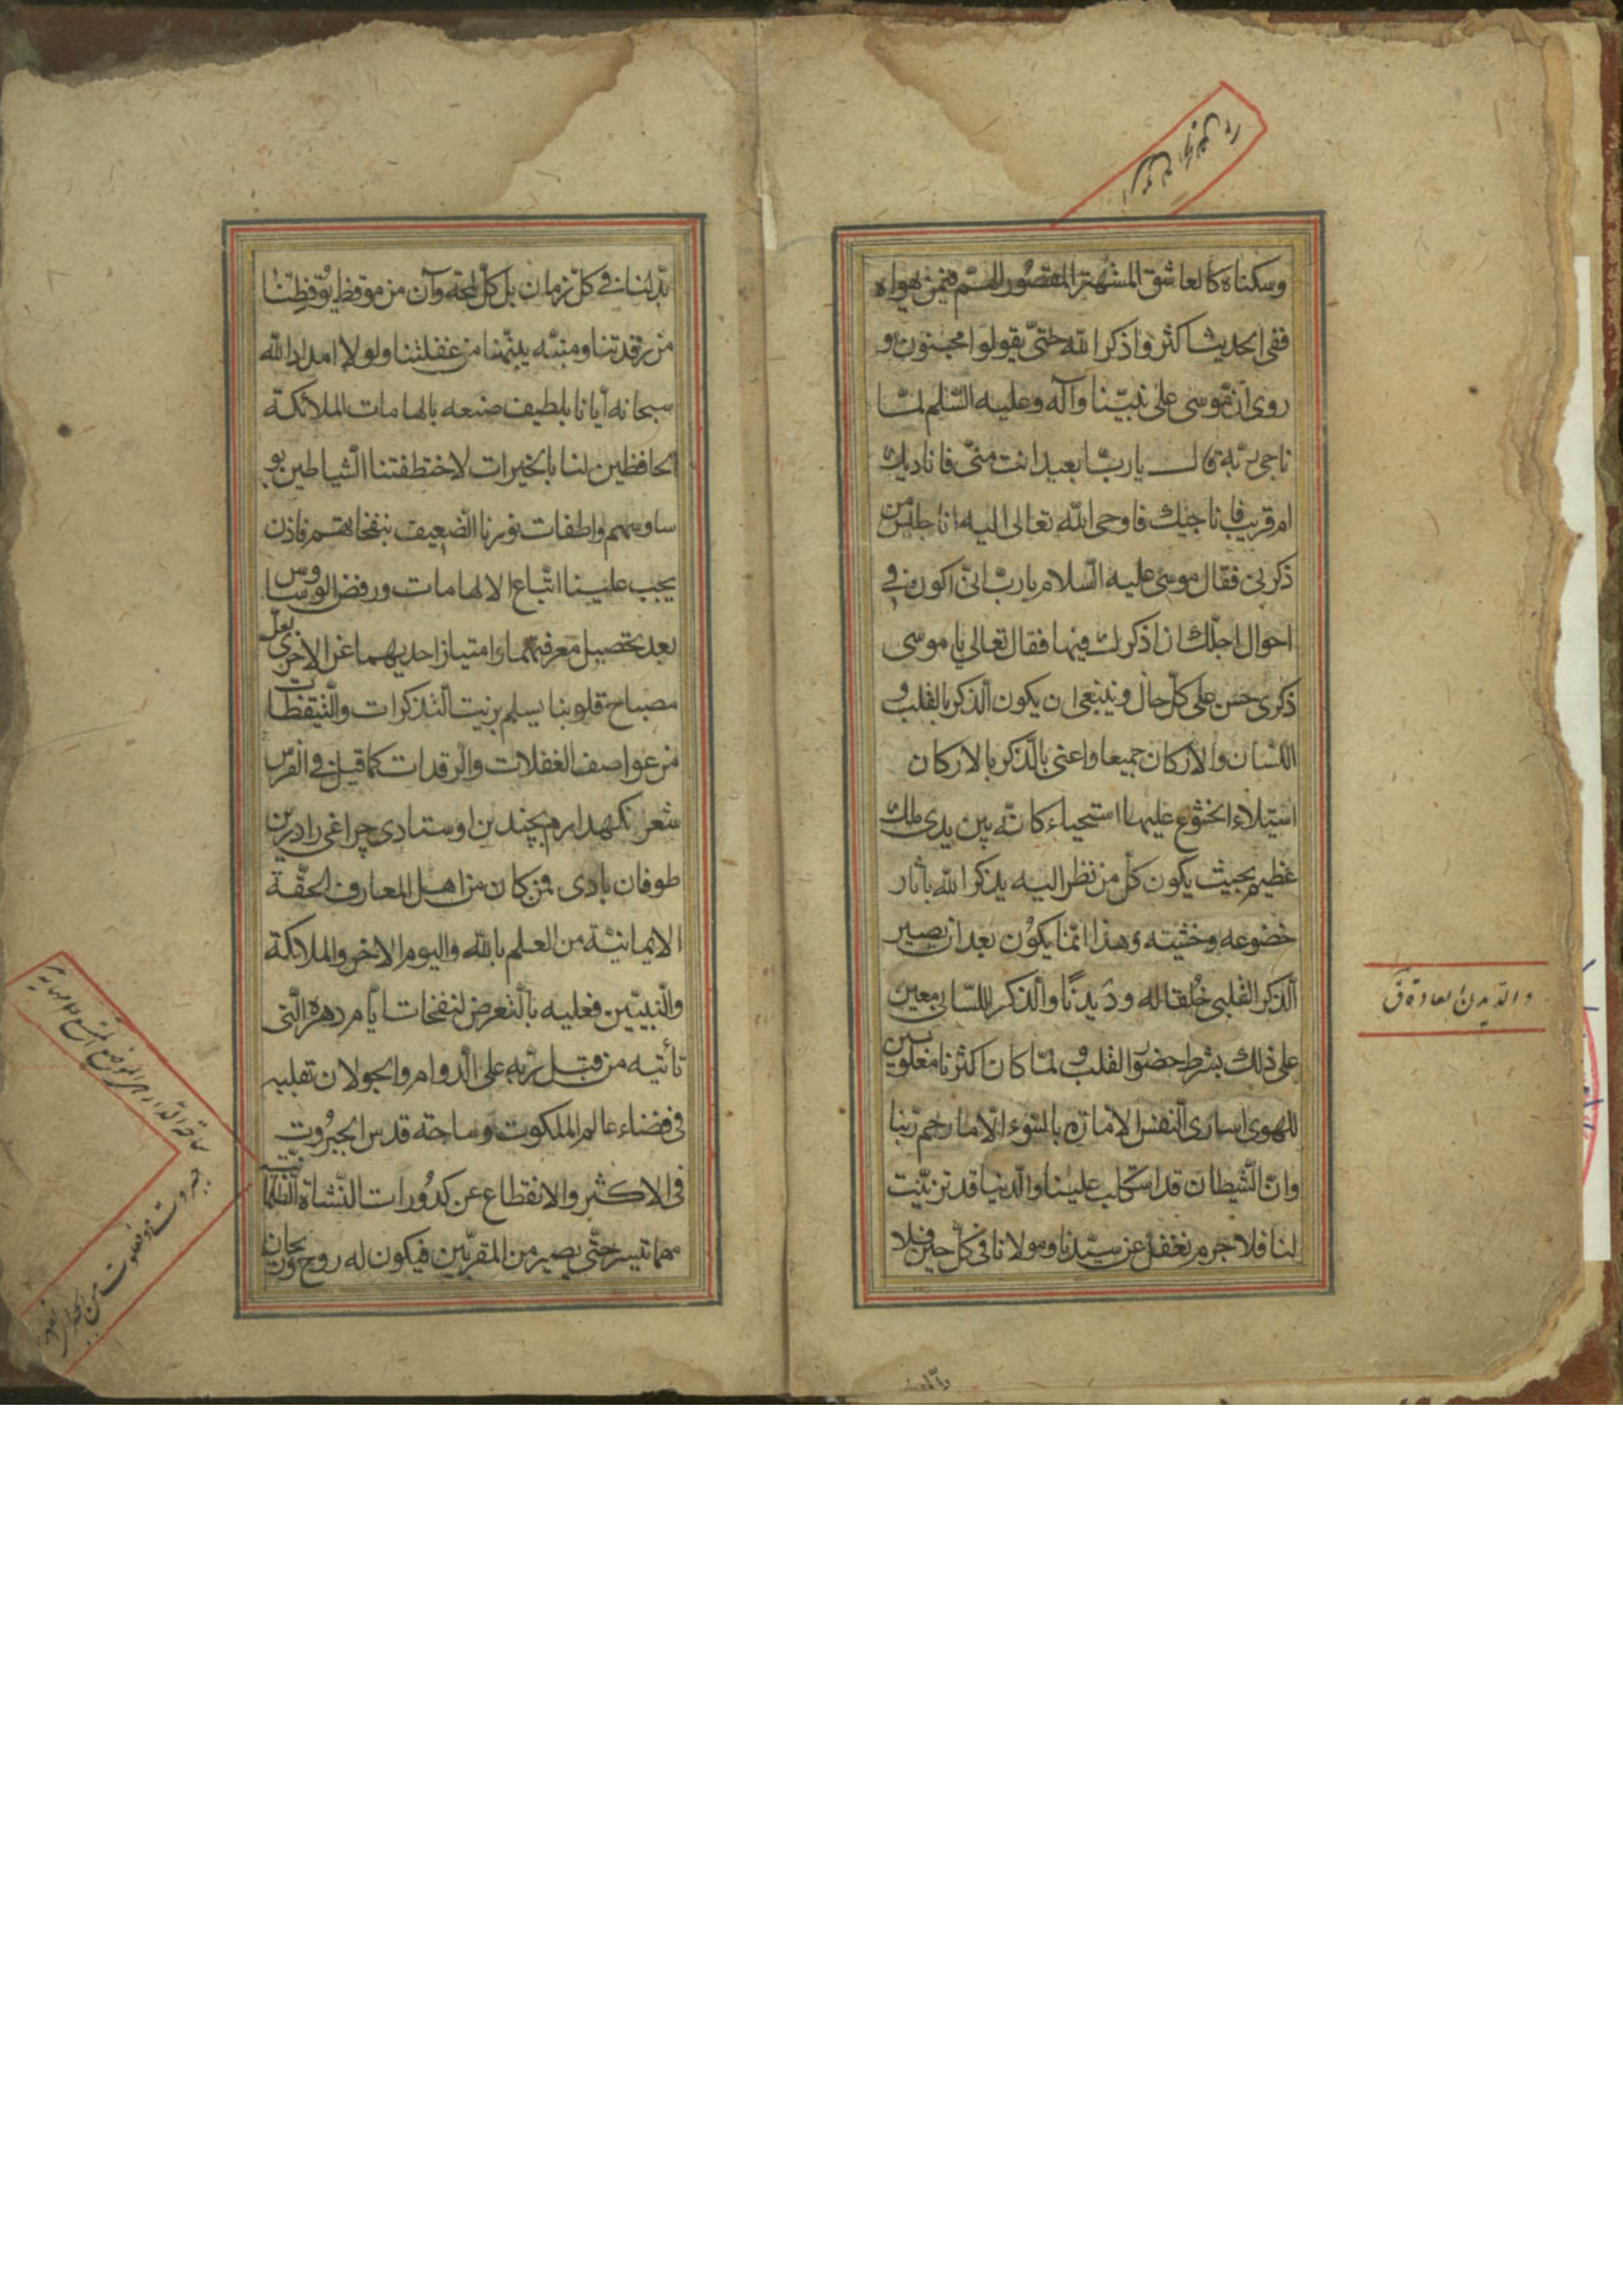 وسكناه كالعاشق المشتهر المقصور الهمّ فيمن يهواه
ففى الحديث اكثروا ذكر الله حتّى يقولوا مجنون و
روى انّ موسى على نبيّنا وآله وعليه السّلم لمّا
ناجى ربّه قال يا ربّ ا بعيد انت منّى فاناديك
ام قريب فاناجيك فاوحى الله تعالى اليه انا جليس من
ذكرنى فقال موسى عليه السّلام يا ربّ انّى اكون فى
احوال اجلّك ان اذكرك فيها فقال تعالى يا موسى
ذكرى حسن على كلّ حال وينبغى ان يكون الذّكر بالقلب و
اللّسان والاركان جميعا واعنى بالذّكر بالاركان
استيلاء الخشوع عليها استحياء كانّه بين يدى ملك
عظيم بحيث يكون كلّ من نظر اليه يذكر الله بآثار
خضوعه وخشيته وهذا انّما يكون بعد ان يصير
الذّكر القلبى خُلقا له ودَيدنًا والذّكر اللّسانى معين
على ذلك بشرط حضور القلب و لمّا كان اكثرنا مغلوبين
للهوى اسارى النّفس الامّارة بالسّوء الّا ما رحم ربّنا
وانّ الشّيطان قد استكلب علينا والدّنيا قد تزيّنت
لنا فلا جرم نغفل عن سيّدنا ومولانا فى كلّ حين فلا
والدّيدن العادة ق
بدّ لنا فى كلّ زمان بل كلّ لمحة وآن من موقظ يُوقظنا
من رقدتنا ومنبّه ينبّهنا من غفلتنا ولولا امداد الله
سبحانه ايّانا بلطيف صنعه بالهامات الملائكة
الحافظين لنا بالخيرات لاختطفتنا الشّياطين بو
ساوسهم واطفات نورنا الضّعيف بنفخاتهم فاذن
يجب علينا اتّباع الالهامات ورفض الوساوس
بعد تحصيل معرفتهما وامتياز احديهما عن الاخرى لعلّ
مصباح قلوبنا يسلم بزيت التّذكرات والتّيقظات
من عواصف الغفلات والرّقدات كما قيل فى الفرس
شعر نكهدارم بچندين اوستادى چراغى را درين
طوفان بادى فمن كان من اهل المعارف الحقّة
الايمانيّة من العلم بالله واليوم الاخر والملائكة
والنّبيّين فعليه بالتّعرض لنفحات ايّام دهره الّتى
تأتيه من قبل ربّه على الدّوام والجولان بقلبه
فى فضاء عالم الملكوت وساحة قدس الجبروت
فى الاكثر والانقطاع عن كدورات النّشاة الظّلمانيّة
مهما تيسر حتّى يصير من المقرّبين فيكون له روح وريحان